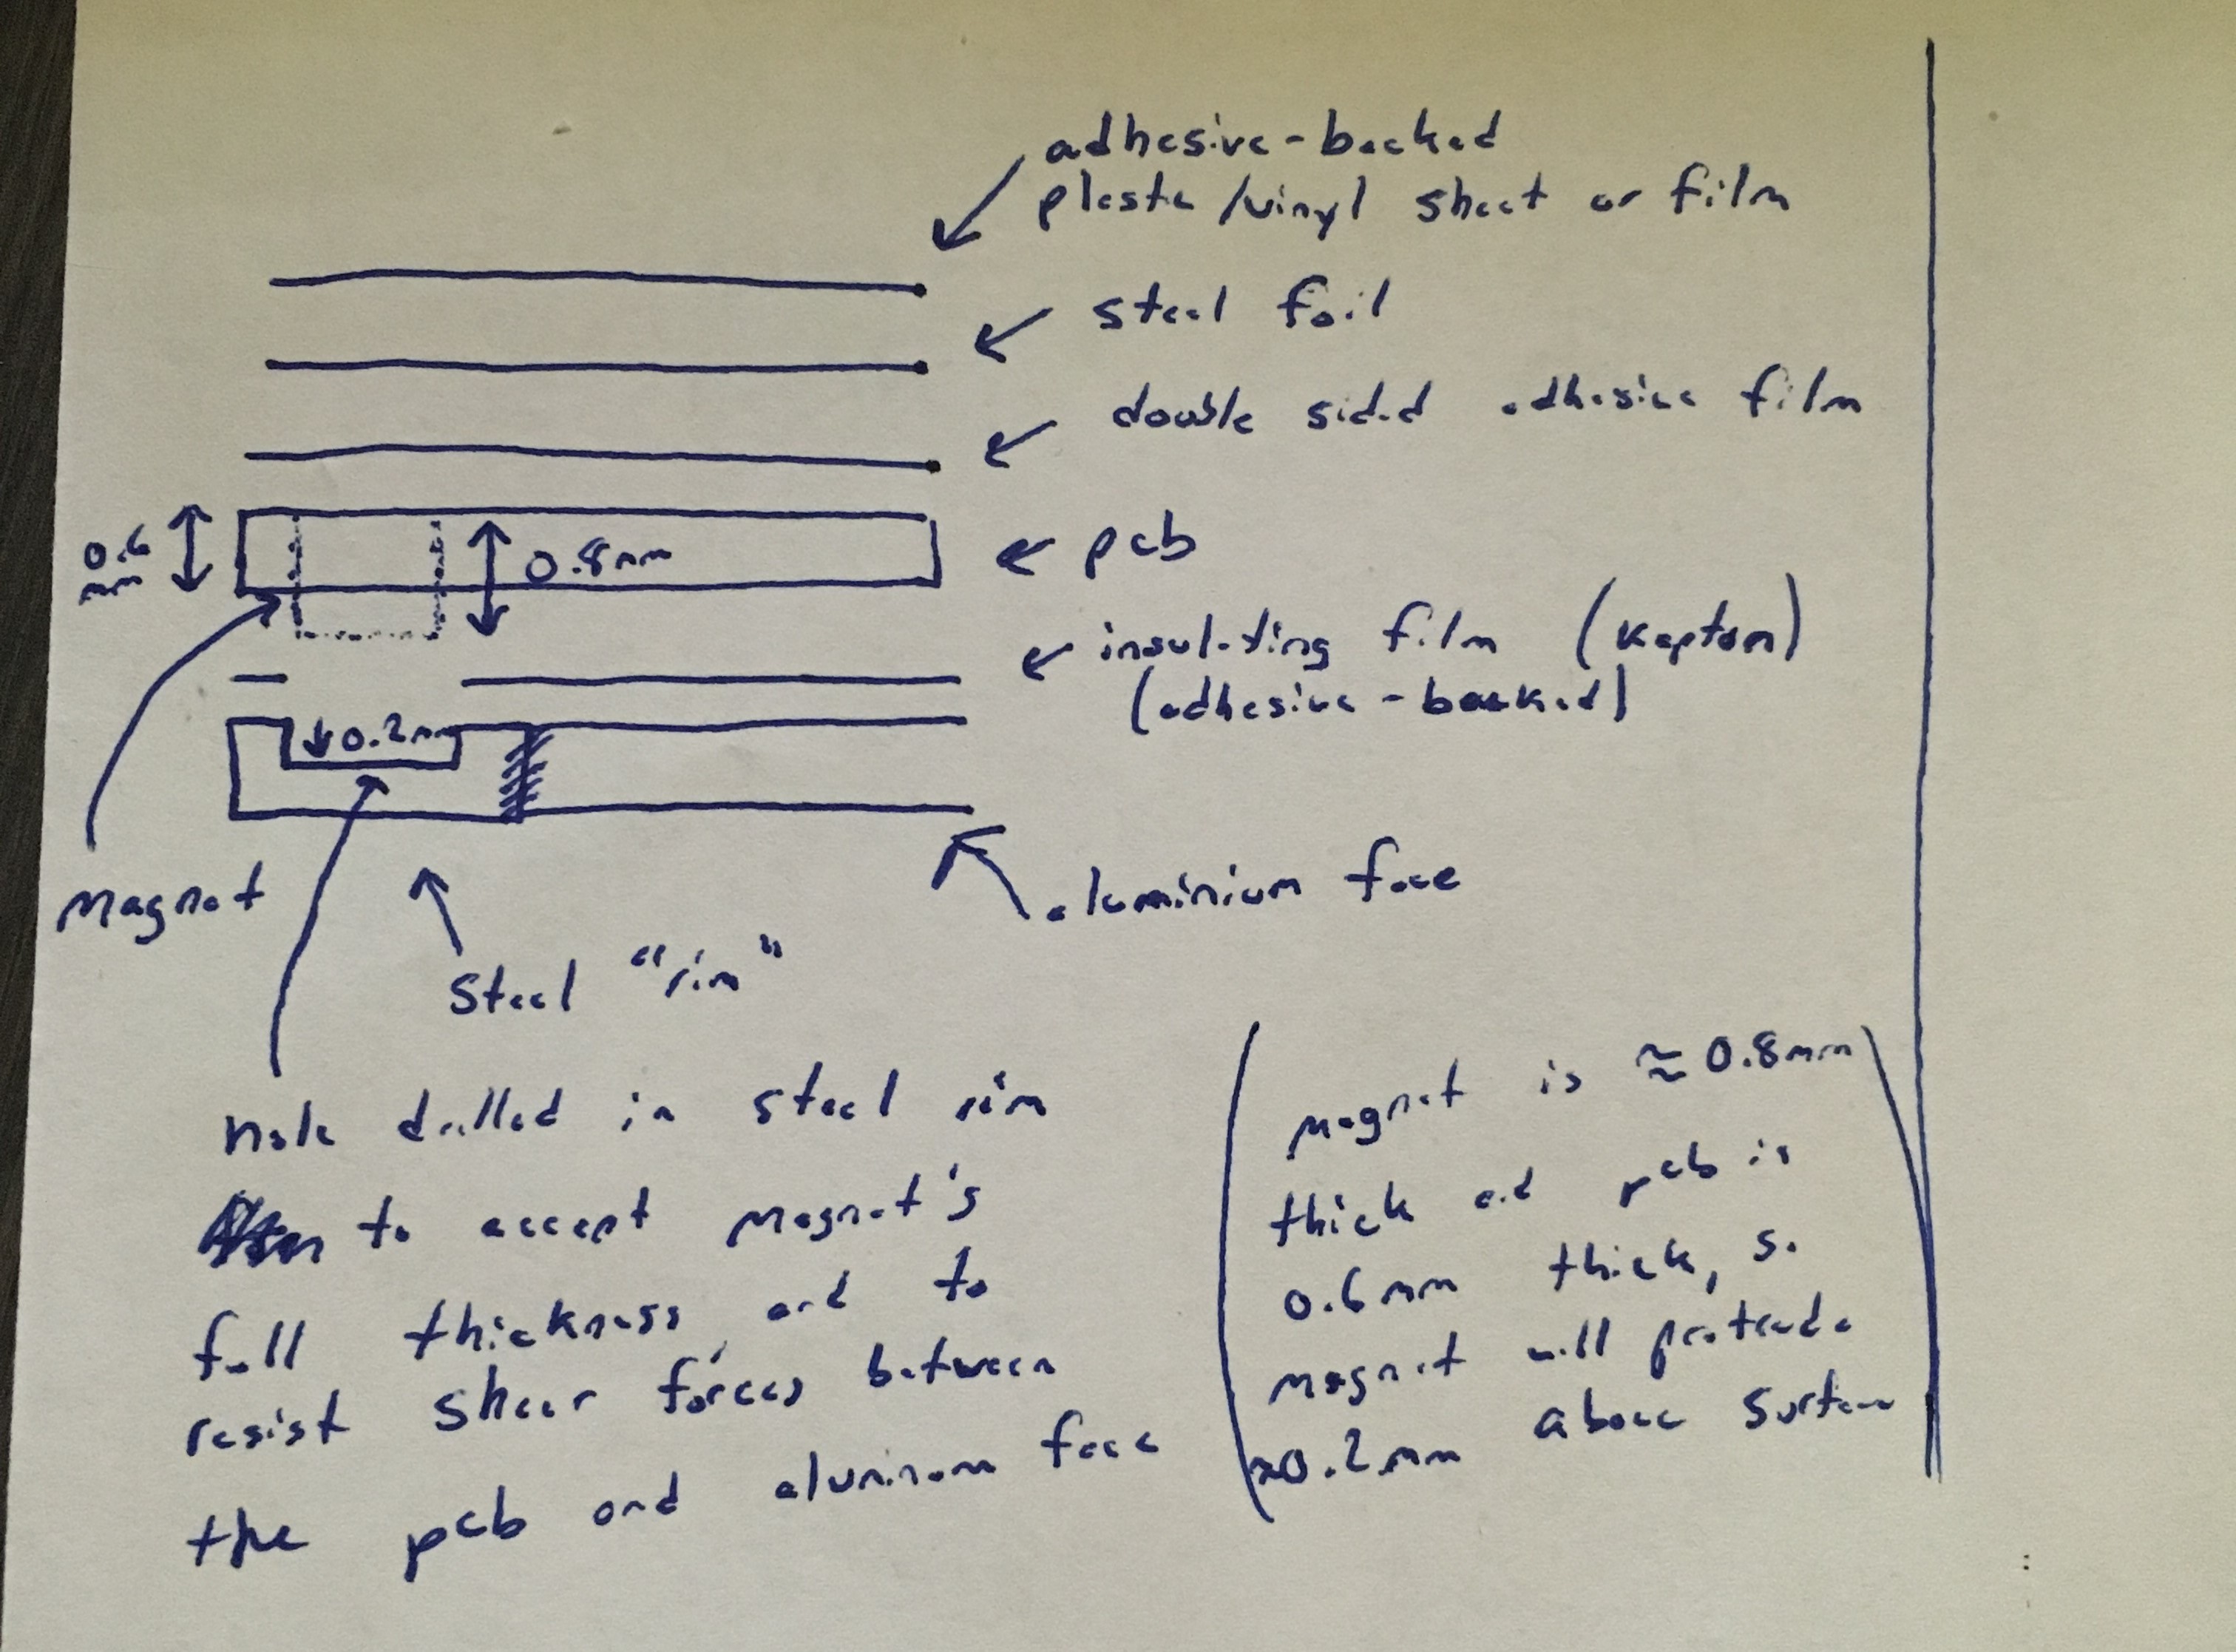 adhesive-backed
plastic/vinyl sheet or film
steel foil
double sided adhesive film
0.6
mm
0.8mm
pcb
insulating film (kapton)
(adhesive-backed)
↓0.2mm
magnet
aluminium face
steel "rim"
hole drilled in steel rim
to accept magnet's
full thickness, and to
resist shear forces between
the pcb and aluminum face
magnet is ≈ 0.8mm
thick and pcb is
0.6mm thick, so
magnet will protrude
≈0.2mm above surface